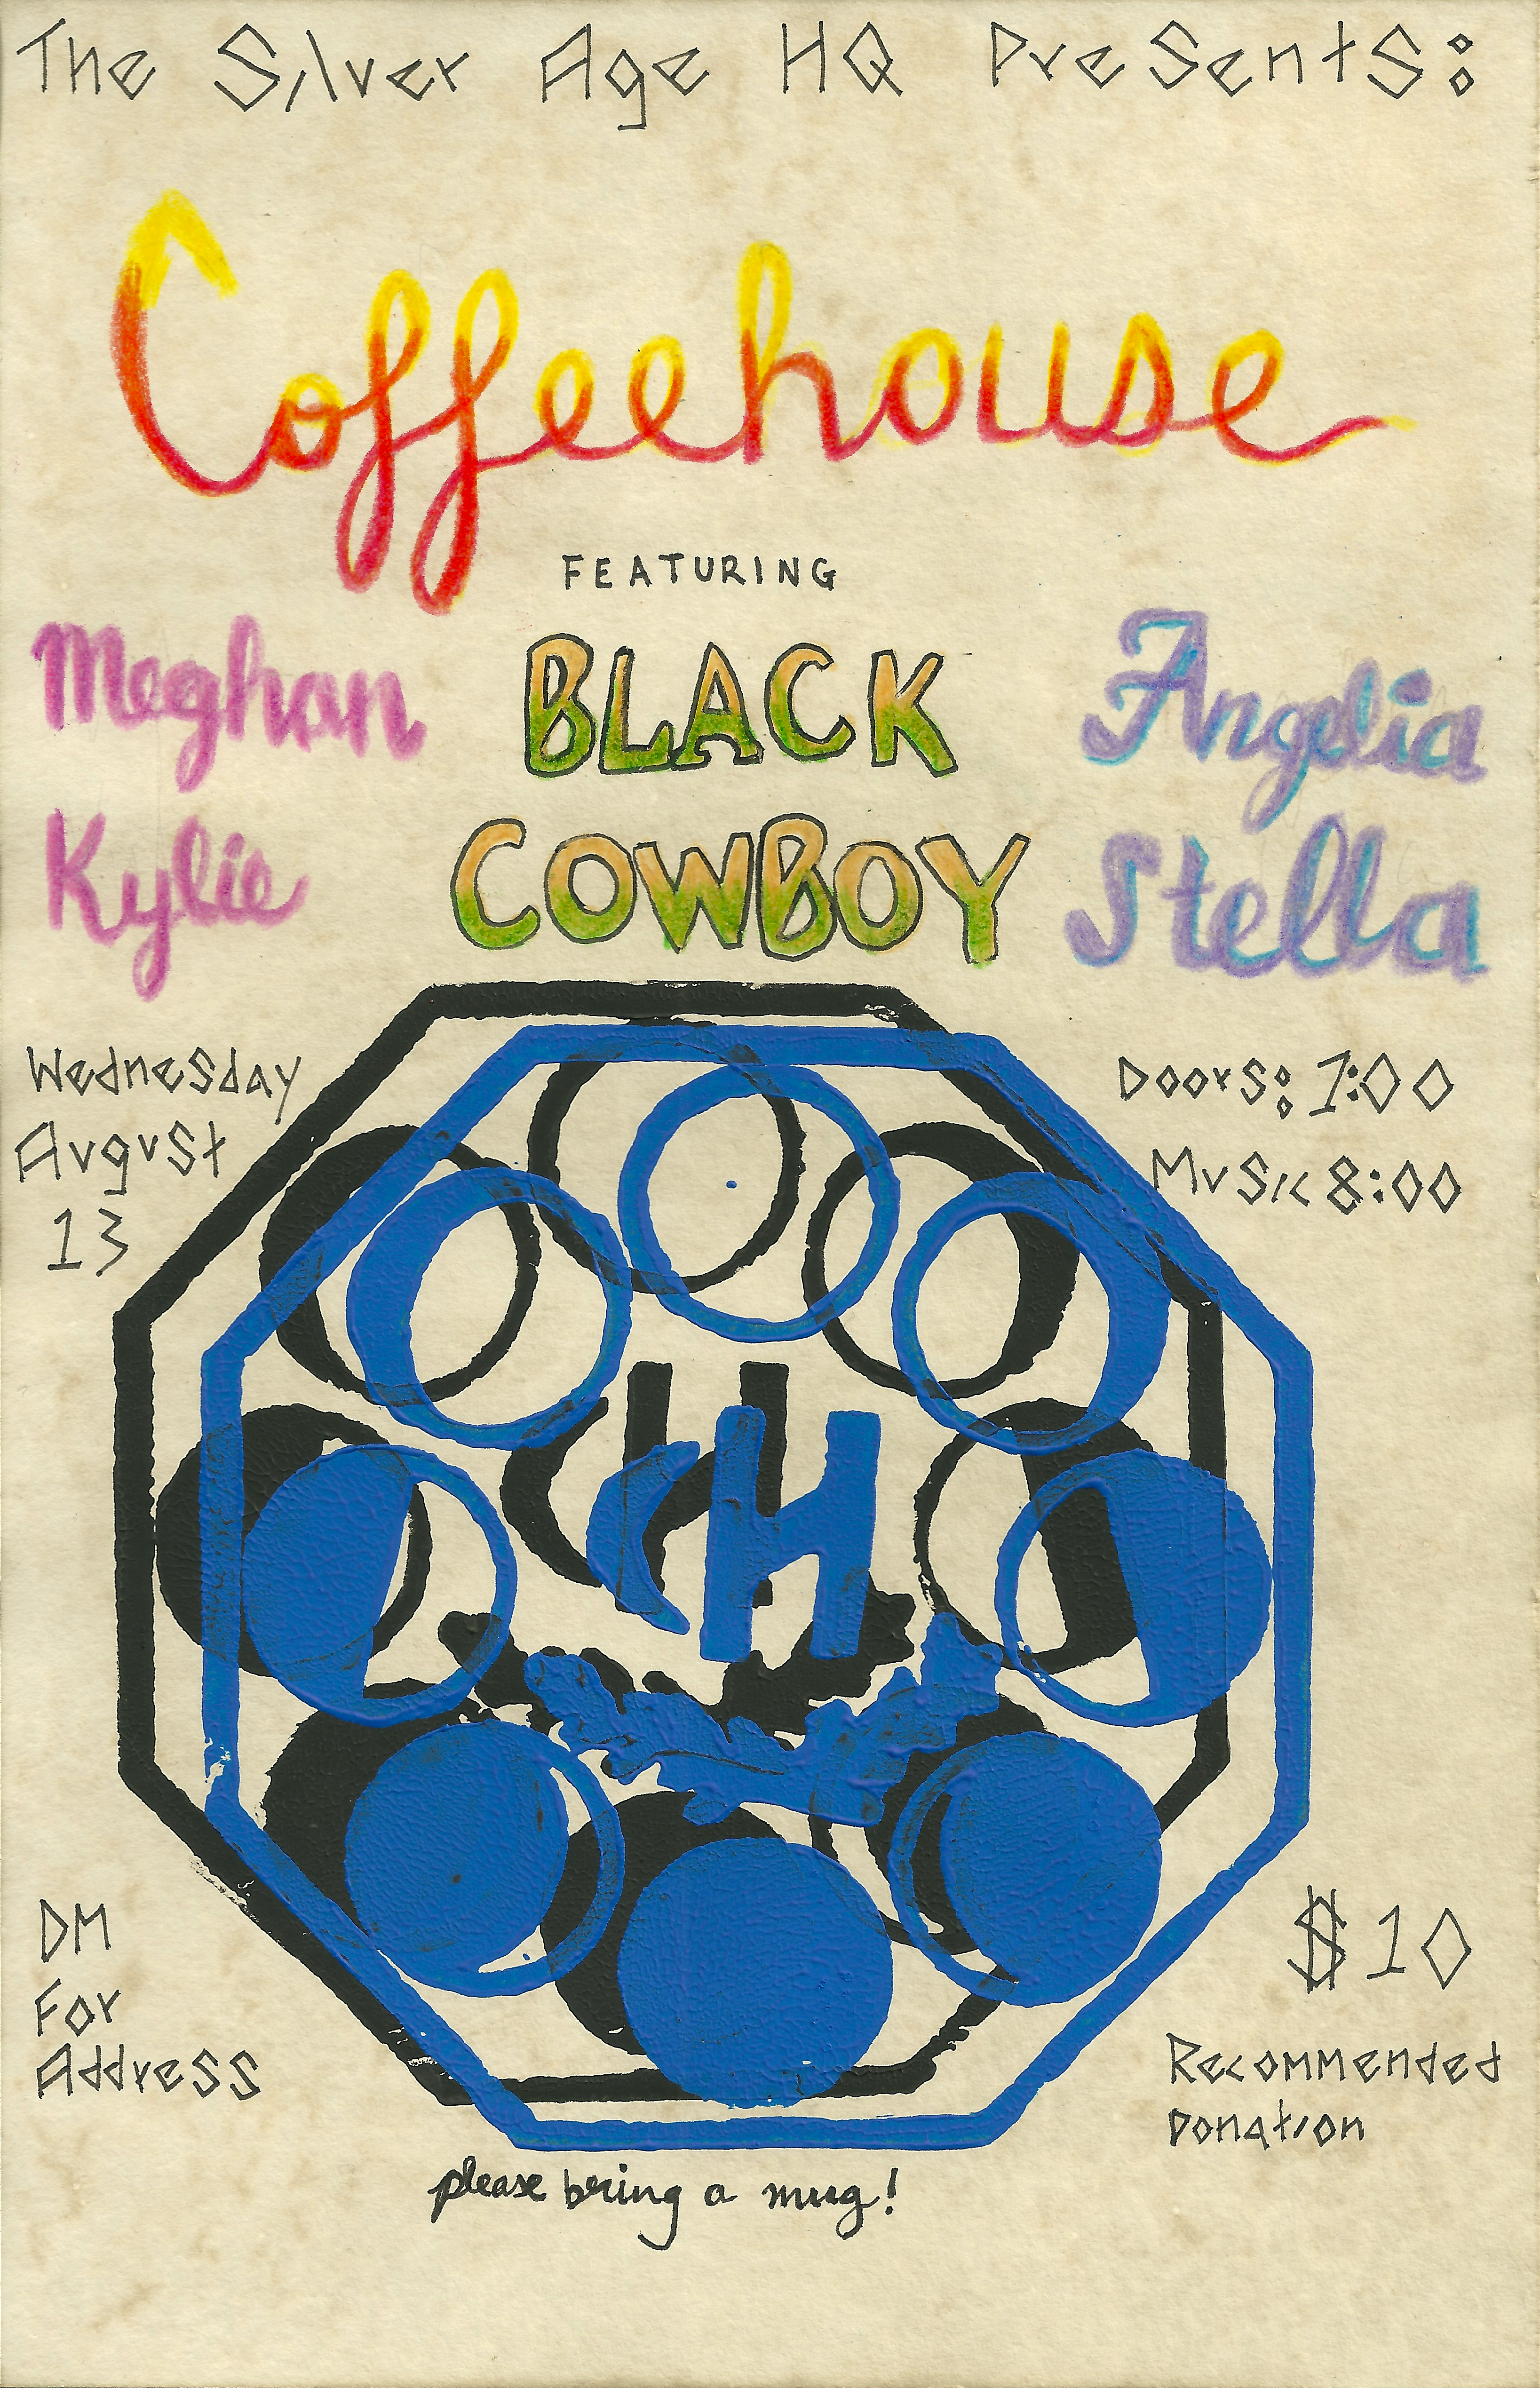 The Silver Age HQ Presents:
Coffeehouse
FEATURING
Meghan
Kylie
BLACK
COWBOY
Angelia
Stella
Wednesday
August
13
Doors: 7:00
Music 8:00
CH
DM
For
Address
$10
Recommended
Donation
please bring a mug!